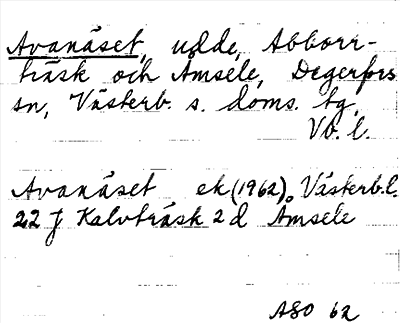 Avanäset, udde, Abborr-
träsk och Amsele, Degerfors
sn, Västerb. s. doms. tg,
Vb. l.
Avanäset ek (1962), Västerb.l.
22 J Kalvträsk 2 d Amsele
ASO 62